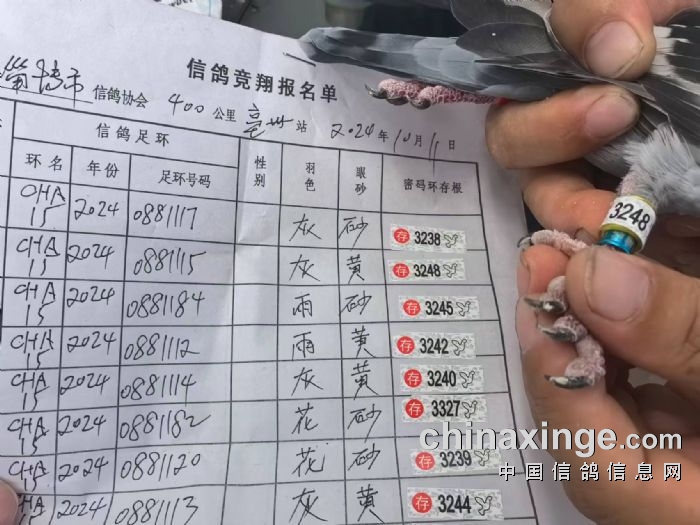 信鸽竞翔报名单
淄博市 信鸽协会 400 公里 亳州 站 2024 年 10 月 11 日
信鸽足环 性别 羽色 眼砂 密码环存根
环名 年份 足环号码
CHA 15 2024 0881117 灰 砂 存 3238
CHA 15 2024 0881115 灰 黄 存 3248
CHA 15 2024 0881184 雨 砂 存 3245
CHA 15 2024 0881112 雨 黄 存 3242
CHA 15 2024 0881114 灰 黄 存 3240
CHA 15 2024 0881182 花 砂 存 3327
CHA 15 2024 0881120 花 砂 存 3239
CHA 2024 0881113 灰 黄 存 3244
3248
chinaxinge.com
中国信鸽信息网